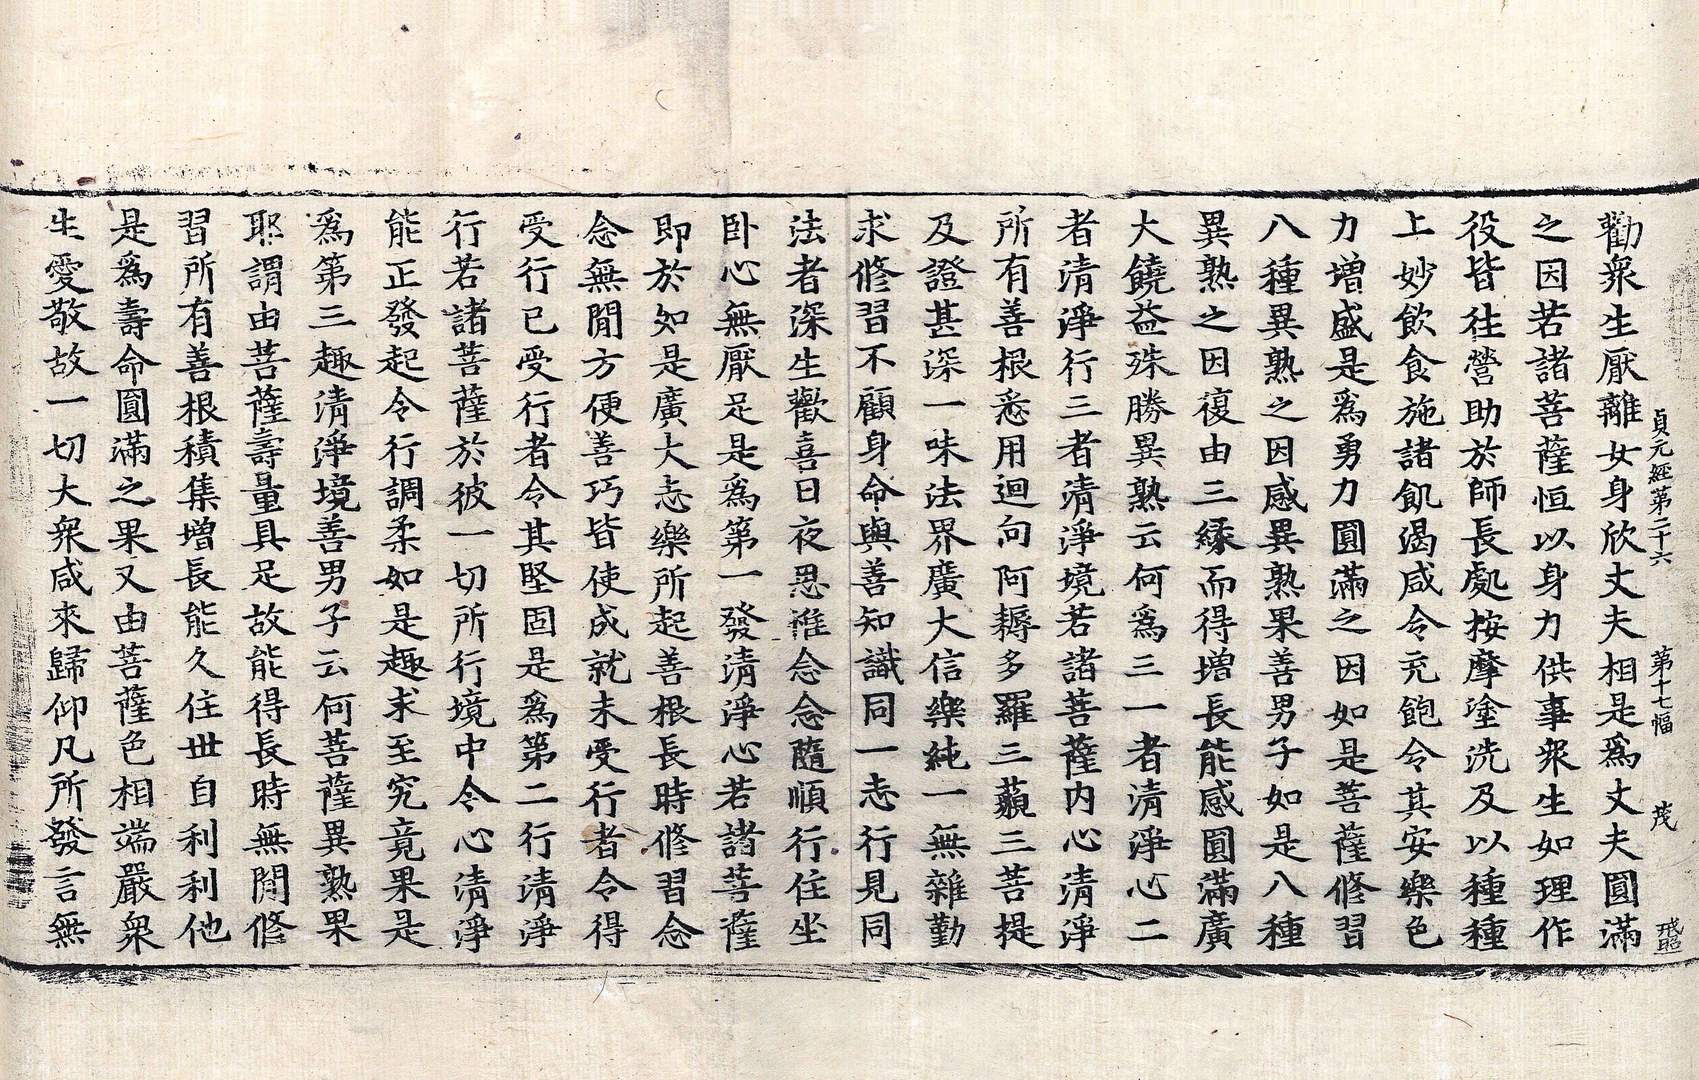 貞元經第二十六 第十七幅 茂 戒照
勸衆生厭離女身欣丈夫相是爲丈夫圓滿
之因若諸菩薩恒以身力供事衆生如理作
役皆往營助於師長處按摩塗洗及以種種
上妙飲食施諸飢渴咸令充飽令其安樂色
力增盛是爲勇力圓滿之因如是菩薩修習
八種異熟之因感異熟果善男子如是八種
異熟之因復由三緣而得增長能感圓滿廣
大饒益殊勝異熟云何爲三一者清淨心二
者清淨行三者清淨境若諸菩薩內心清淨
所有善根悉用迴向阿耨多羅三藐三菩提
及證甚深一味法界廣大信樂純一無雜勤
求修習不顧身命與善知識同一志行見同
法者深生歡喜日夜思惟念念隨順行住坐
卧心無厭足是爲第一發清淨心若諸菩薩
即於如是廣大志樂所起善根長時修習念
念無閒方便善巧皆使成就未受行者令得
受行已受行者令其堅固是爲第二行清淨
行若諸菩薩於彼一切所行境中令心清淨
能正發起令行調柔如是趣求至究竟果是
爲第三趣清淨境善男子云何菩薩異熟果
耶謂由菩薩壽量具足故能得長時無閒修
習所有善根積集增長能久住世自利利他
是爲壽命圓滿之果又由菩薩色相端嚴衆
生愛敬故一切大衆咸來歸仰凡所發言無